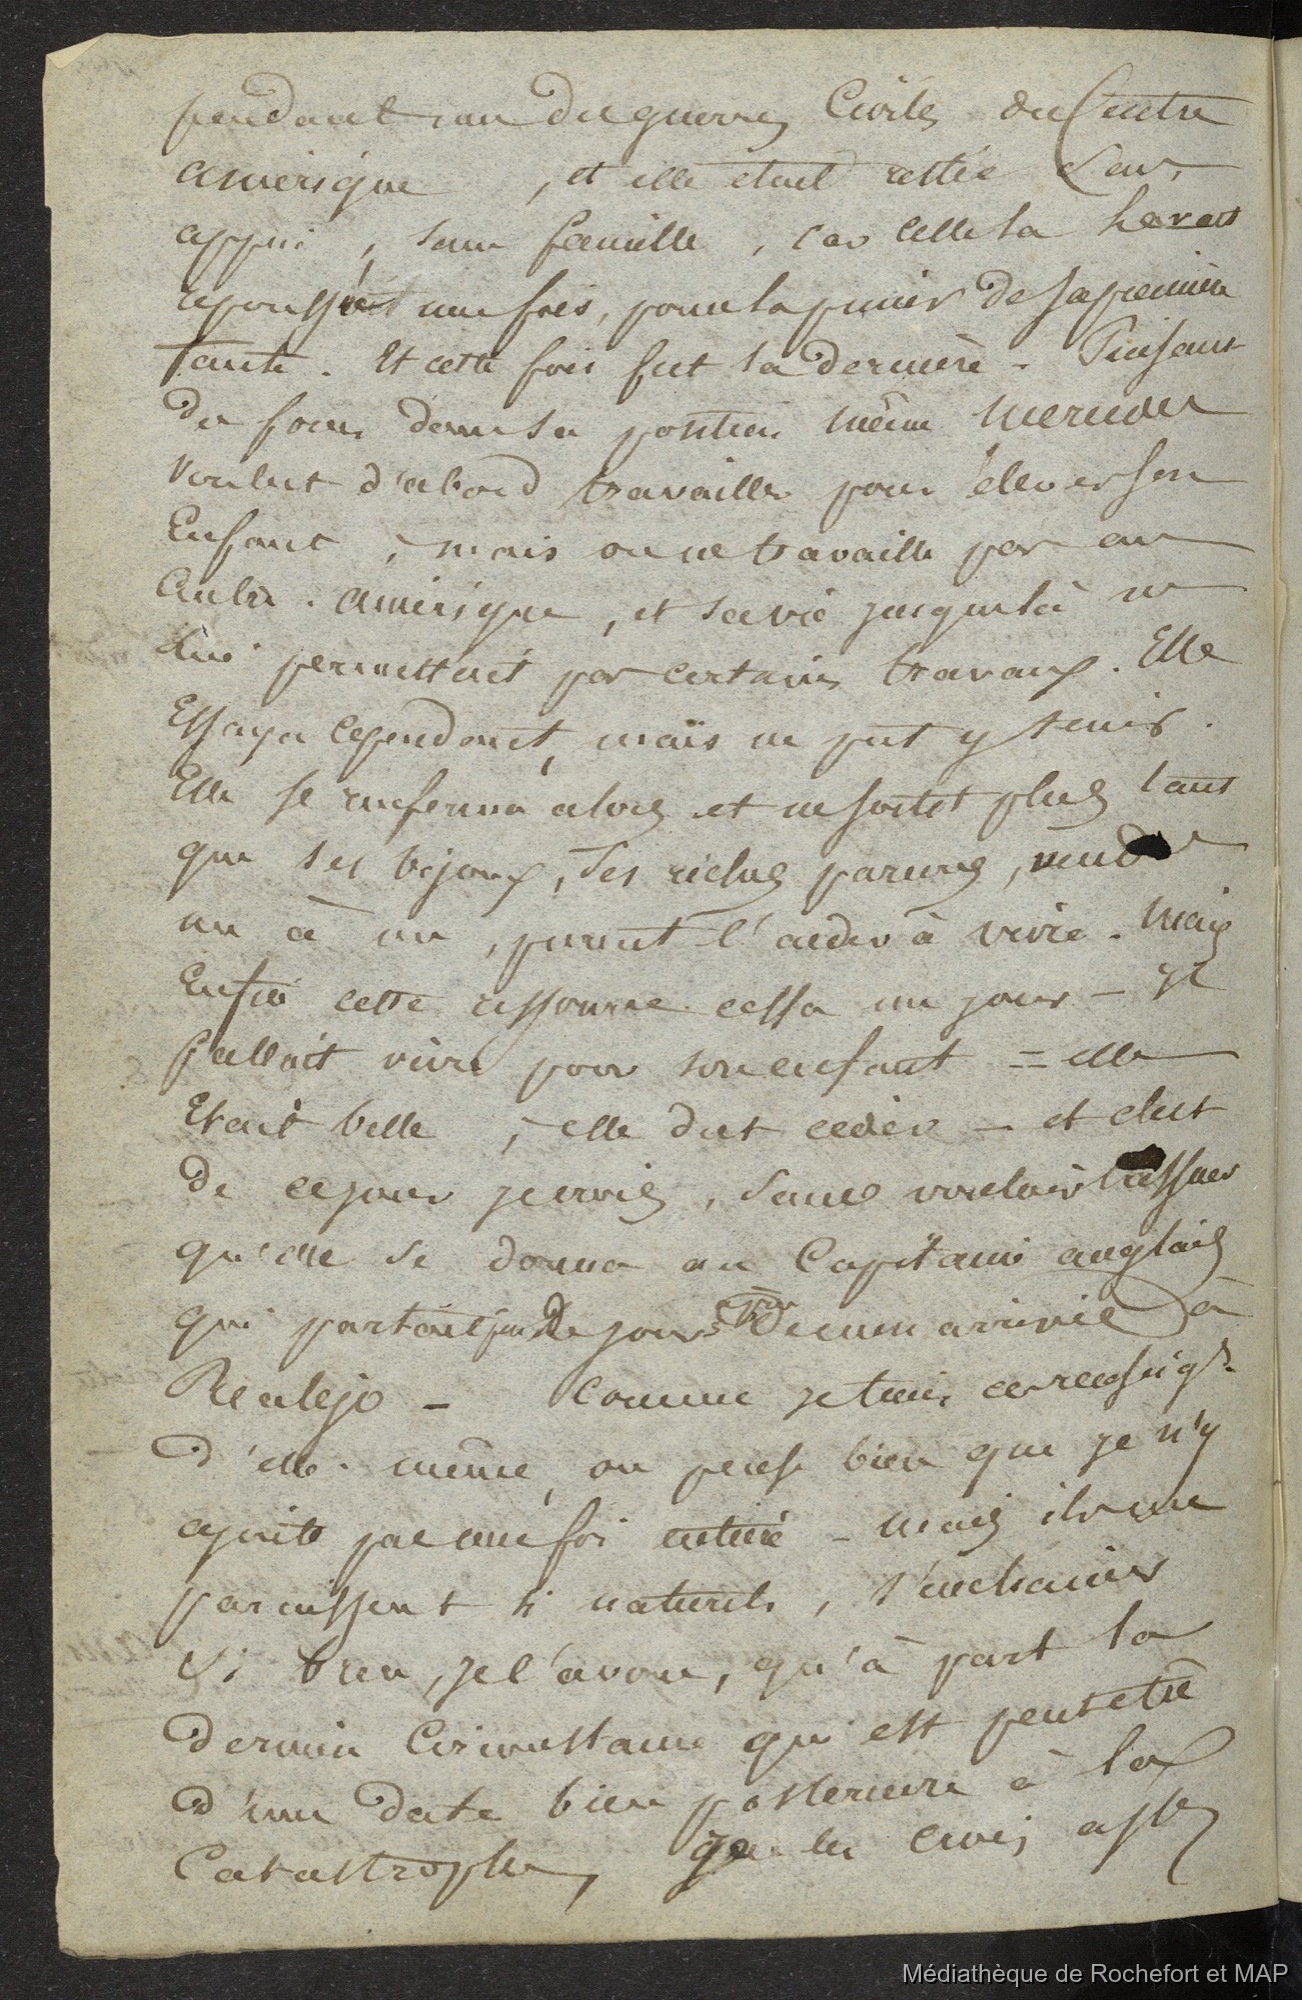 pendant une des guerres Civiles du Centre
amérique , et elle était restée sans
appui , sans famille , car celle la
repoussée une fois, pour la punir de sa première
faute . Et cette fois fut la dernière - Puisant
des forces dans sa position même
voulut d'abord travailler pour élever son
Enfant , mais on ne travaille pas au
Centre . amérique , et sa vie jusques là ne
lui permettait pas certains travaux . Elle
Essaya cependant, mais ne put y tenir .
Elle se renferma alors et ne sortit plus tant
que ses bijoux, ses riches parures, vendus
un à un , purent l'aider à vivre . Mais
Enfin cette ressource cessa un jour - Il
fallait vivre pour son enfant = elle
Etait belle , elle dut céder - et c'est
de ce jour je crois , sans vouloir
qu'elle se donna au Capitaine anglais
qui partait de jours après mon arrivée à
Realejo - Comme je tiens ces renseigts
d'elle . même, on pense bien que je n'y
ajoute pas une foi entière - mais ils me
paraissent si naturels , s'enchainer
si bien , je l'avoue , qu'à part la
dernière Circonstance qui est peut etre
d'une date bien posterieure à la
Catastrophe, je les crois assez
Médiathèque de Rochefort et MAP